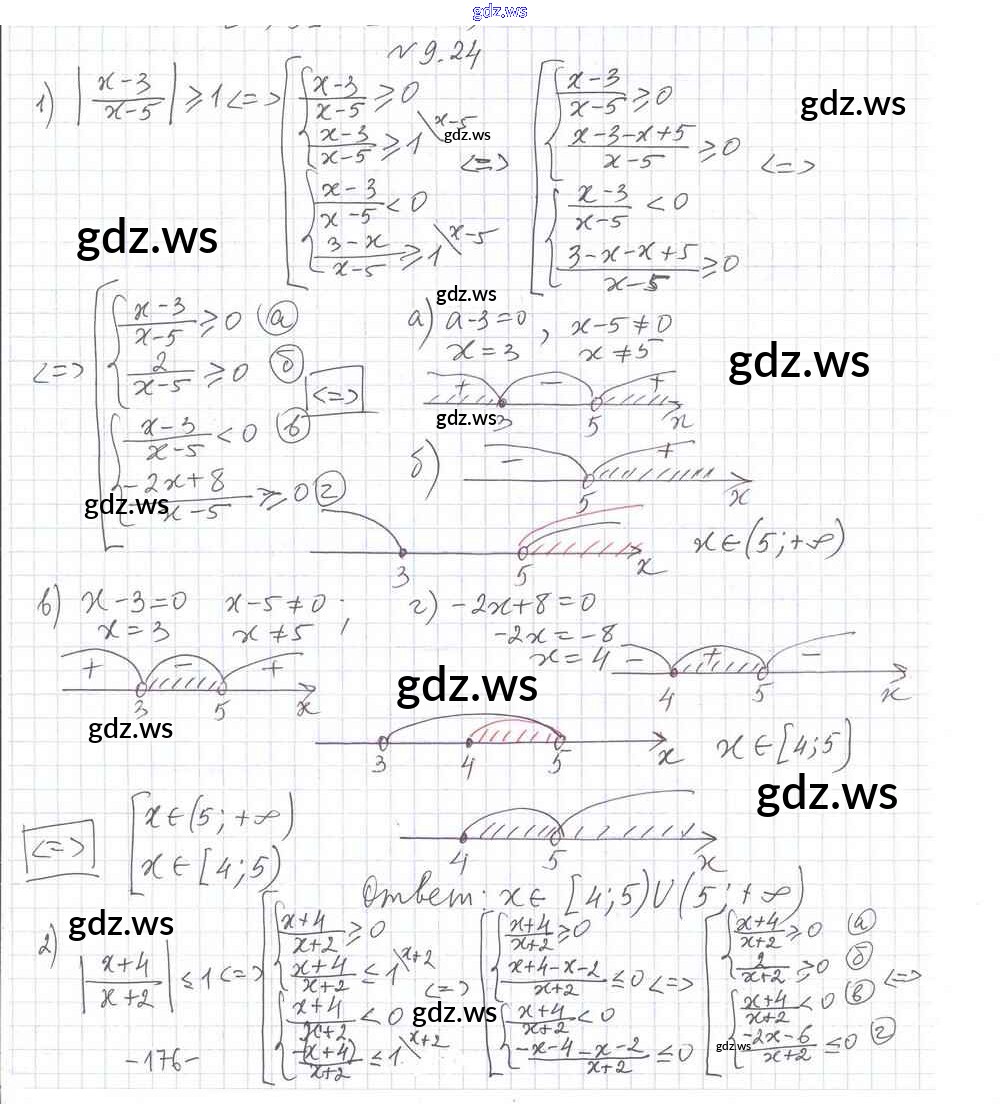 gdz.ws
№ 9.24
1) |(x-3)/(x-5)| ≥ 1 <=> [ { (x-3)/(x-5) ≥ 0 ; (x-3)/(x-5) ≥ 1 \ x-5 ; { (x-3)/(x-5) < 0 ; (3-x)/(x-5) ≥ 1 \ x-5 <=> [ { (x-3)/(x-5) ≥ 0 ; (x-3-x+5)/(x-5) ≥ 0 ; { (x-3)/(x-5) < 0 ; (3-x-x+5)/(x-5) ≥ 0 <=>
gdz.ws
gdz.ws
gdz.ws
gdz.ws
<=> [ { (x-3)/(x-5) ≥ 0 а ; 2/(x-5) ≥ 0 б ; { (x-3)/(x-5) < 0 в ; (-2x+8)/(x-5) ≥ 0 г <=>
а) a-3=0 , x-5≠0
x=3 x≠5
gdz.ws
+ - +
3 5 x
gdz.ws
б) - +
5 x
gdz.ws
3 5 x
x∈(5;+∞)
в) x-3=0 x-5≠0 ;
x=3 x≠5
+ - +
3 5 x
г) -2x+8=0
-2x=-8
x=4
- + -
4 5 x
gdz.ws
gdz.ws
3 4 5 x
x∈[4;5)
gdz.ws
<=> [ x∈(5;+∞)
x∈[4;5)
4 5 x
Ответ: x∈[4;5)∪(5;+∞)
gdz.ws
2) |(x+4)/(x+2)| ≤ 1 <=> [ { (x+4)/(x+2) ≥ 0 ; (x+4)/(x+2) < 1 \ x+2 ; { (x+4)/(x+2) < 0 ; -(x+4)/(x+2) ≤ 1 \ x+2 <=> [ { (x+4)/(x+2) ≥ 0 ; (x+4-x-2)/(x+2) ≤ 0 ; { (x+4)/(x+2) < 0 ; (-x-4-x-2)/(x+2) ≤ 0 <=> [ { (x+4)/(x+2) ≥ 0 а ; 2/(x+2) ≥ 0 б ; { (x+4)/(x+2) < 0 в ; (-2x-6)/(x+2) ≤ 0 г <=>
gdz.ws
gdz.ws
-176-